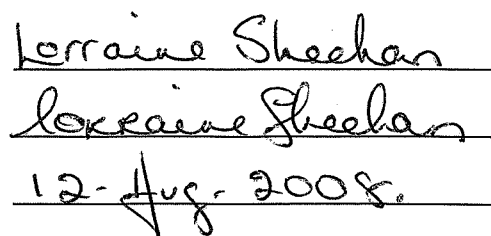 Lorraine Sheehan
Lorraine Sheehan
12-Aug-2008.